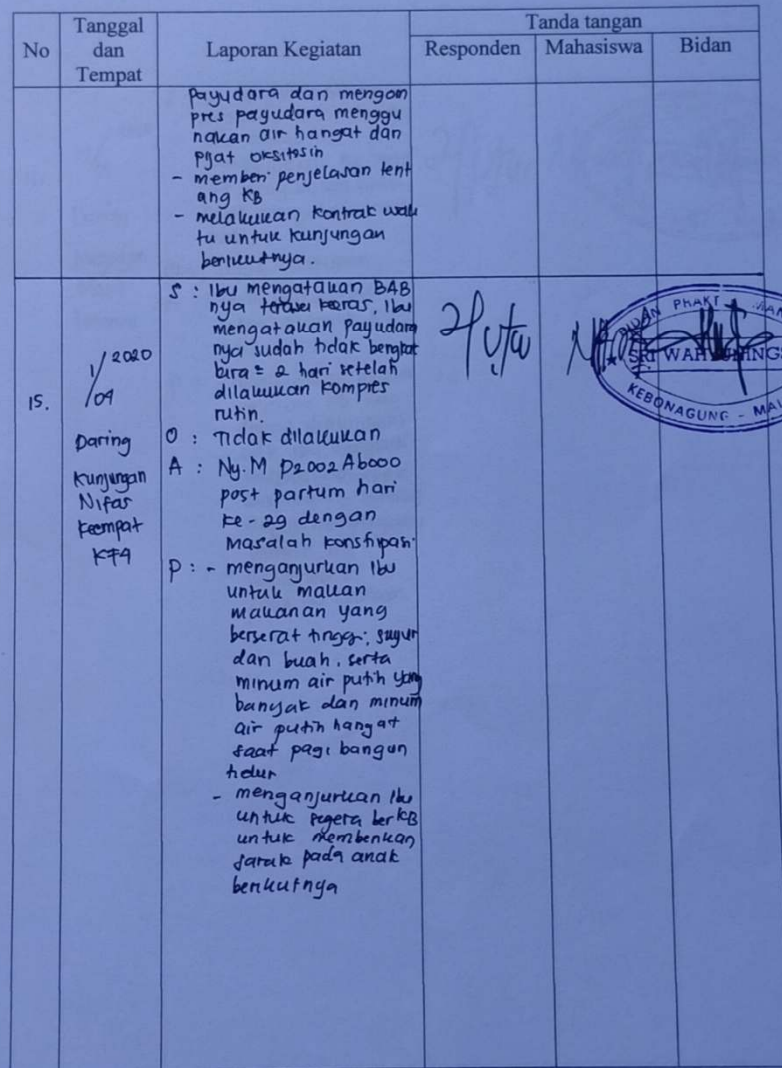 No
Tanggal
dan
Tempat
Laporan Kegiatan
Tanda tangan
Responden
Mahasiswa
Bidan
payudara dan mengom
pres payudara menggu
nakan air hangat dan
pijat oksitosin
- memberi penjelasan tent
ang KB
- melakukan kontrak wak
tu untuk kunjungan
berikutnya.
15.
1/ 2020
/09
Daring
Kunjungan
Nifas
keempat
KF4
S : Ibu mengatakan BAB
nya terasa keras, Ibu
mengatakan payudara
nya sudah tidak bengkak
kira ± 2 hari setelah
dilakukan kompres
rutin.
O : Tidak dilakukan
A : Ny. M P2002 Ab000
post partum hari
ke - 29 dengan
masalah konstipasi
P : - menganjurkan Ibu
untuk makan
makanan yang
berserat tinggi, sayur
dan buah, serta
minum air putih yang
banyak dan minum
air putih hangat
saat pagi bangun
tidur
- menganjurkan Ibu
untuk segera ber KB
untuk memberikan
jarak pada anak
berikutnya
PHAKT
SRI WAHYUNINGS
KEBONAGUNG - MAL